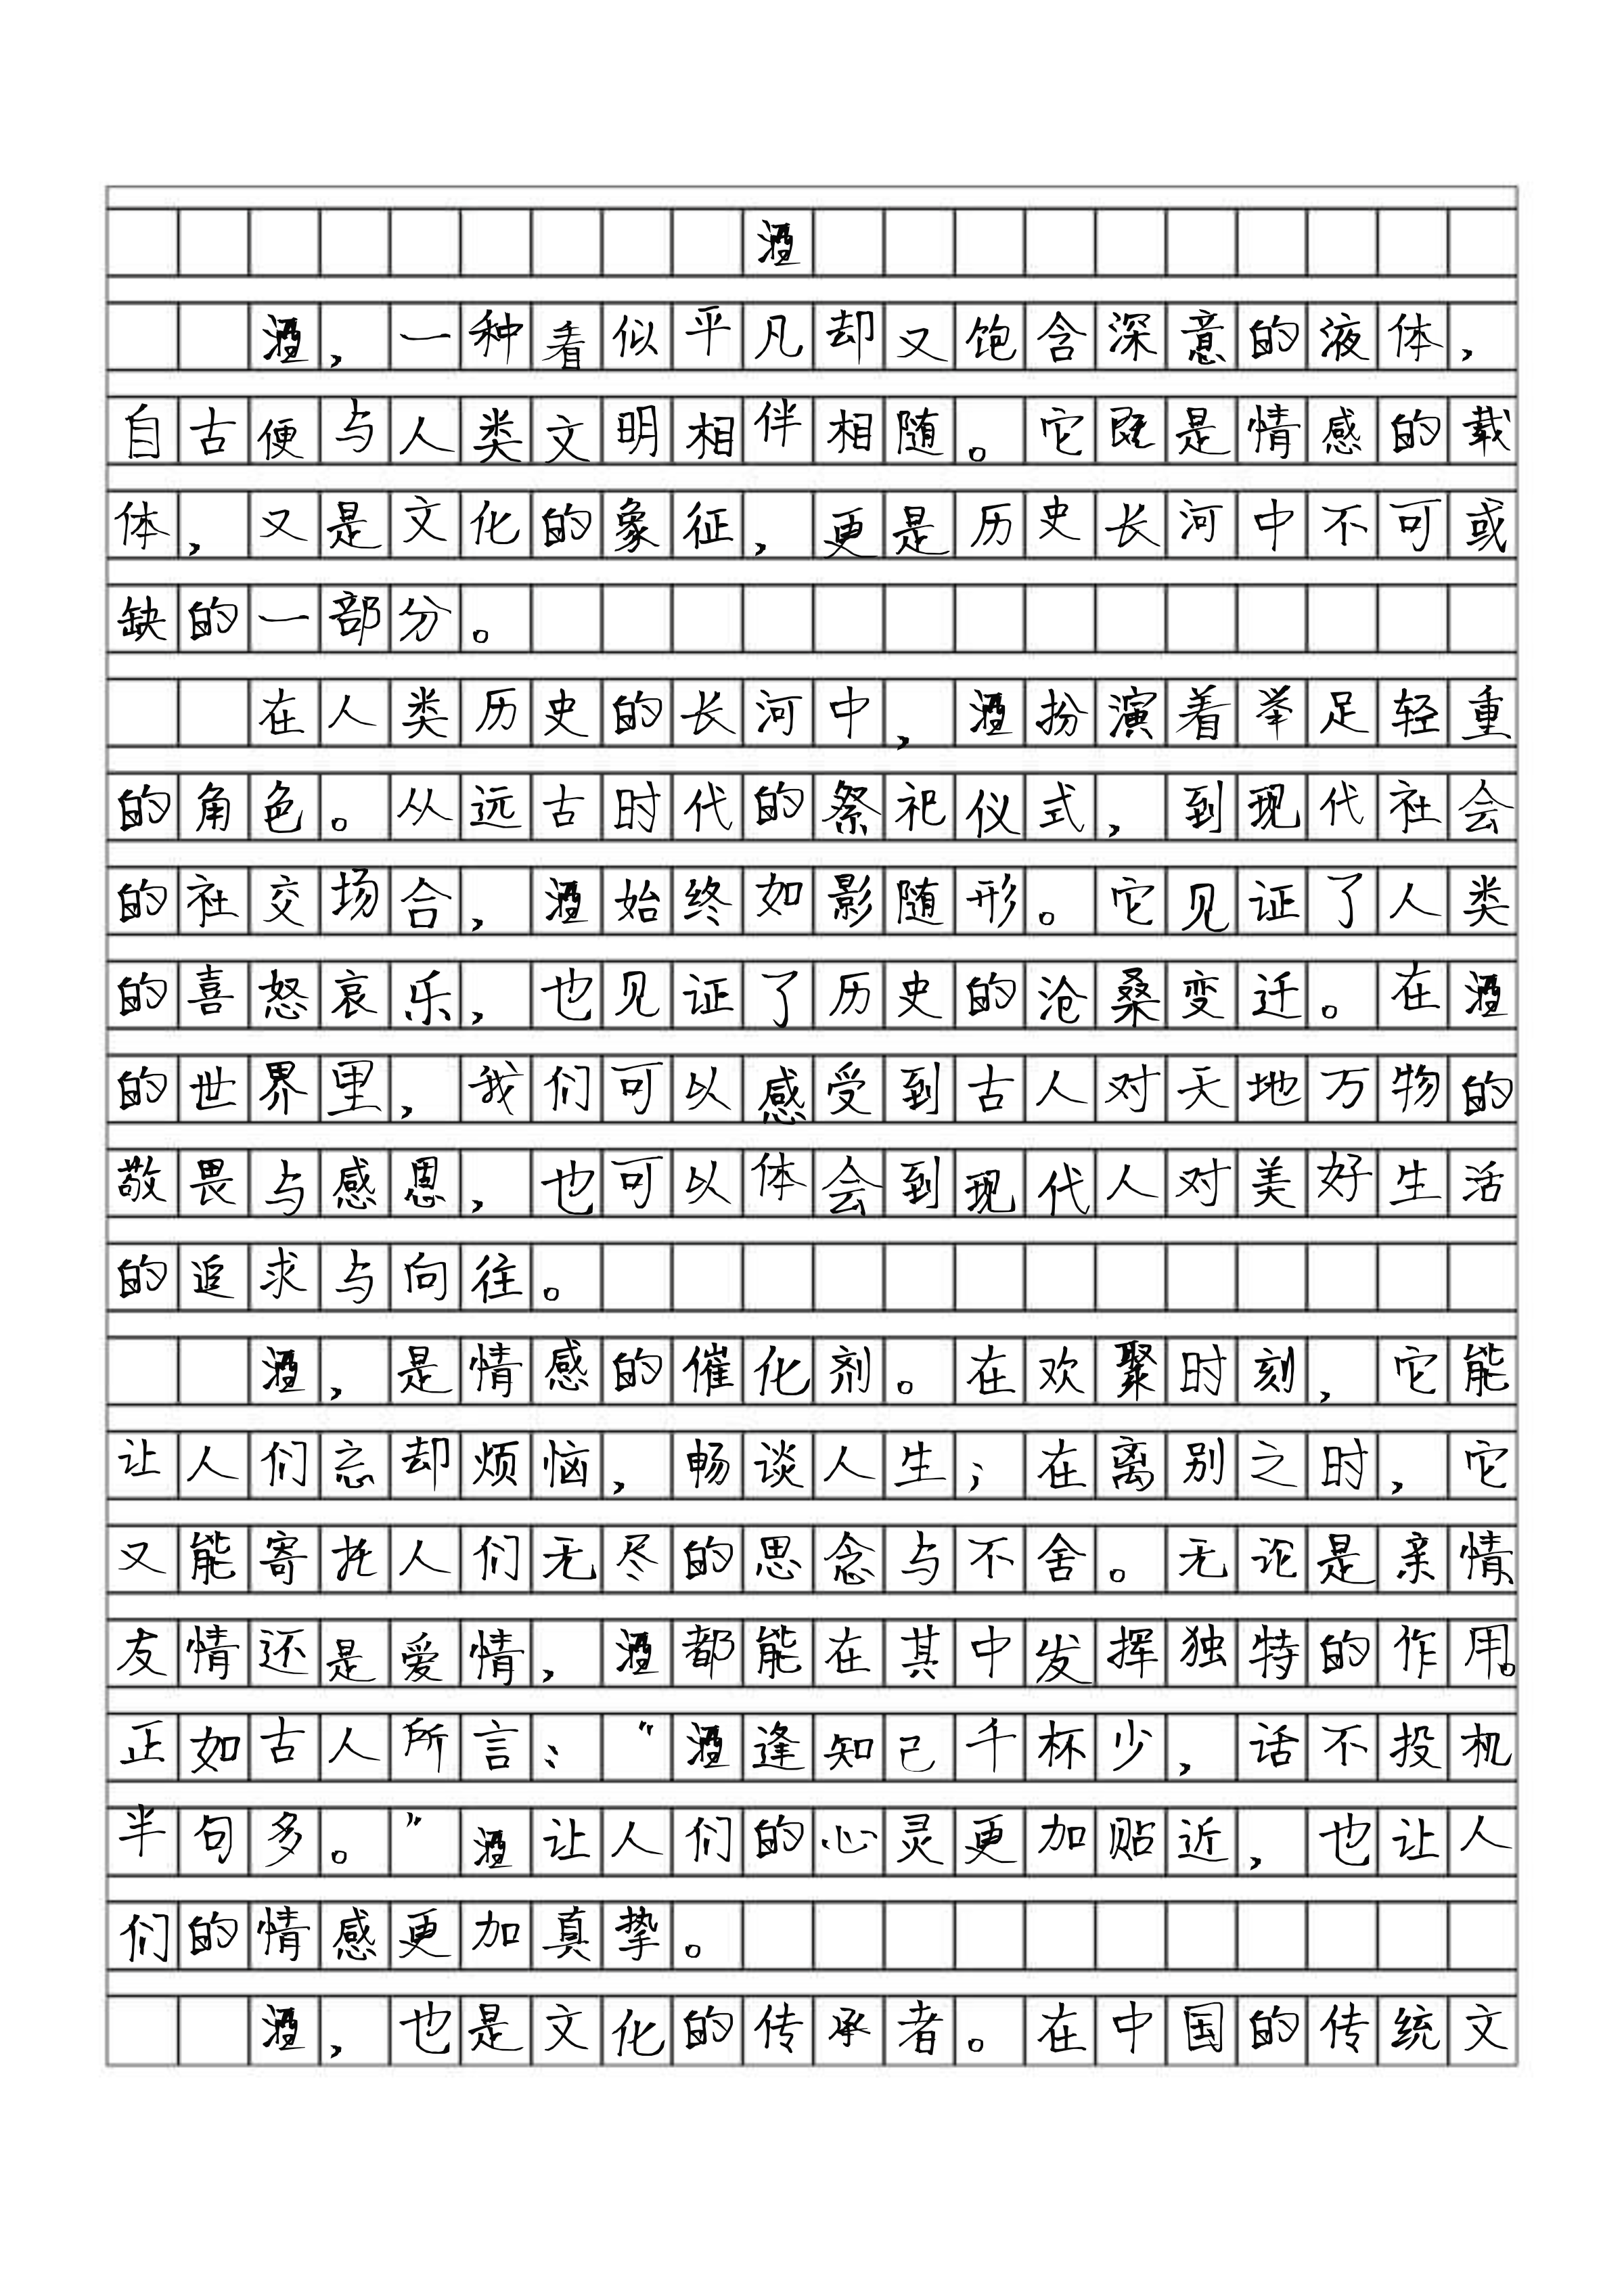 酒
酒，一种看似平凡却又饱含深意的液体，
自古便与人类文明相伴相随。它既是情感的载
体，又是文化的象征，更是历史长河中不可或
缺的一部分。
在人类历史的长河中，酒扮演着举足轻重
的角色。从远古时代的祭祀仪式，到现代社会
的社交场合，酒始终如影随形。它见证了人类
的喜怒哀乐，也见证了历史的沧桑变迁。在酒
的世界里，我们可以感受到古人对天地万物的
敬畏与感恩，也可以体会到现代人对美好生活
的追求与向往。
酒，是情感的催化剂。在欢聚时刻，它能
让人们忘却烦恼，畅谈人生；在离别之时，它
又能寄托人们无尽的思念与不舍。无论是亲情、
友情还是爱情，酒都能在其中发挥独特的作用。
正如古人所言：“酒逢知己千杯少，话不投机
半句多。”酒让人们的心灵更加贴近，也让人
们的情感更加真挚。
酒，也是文化的传承者。在中国的传统文